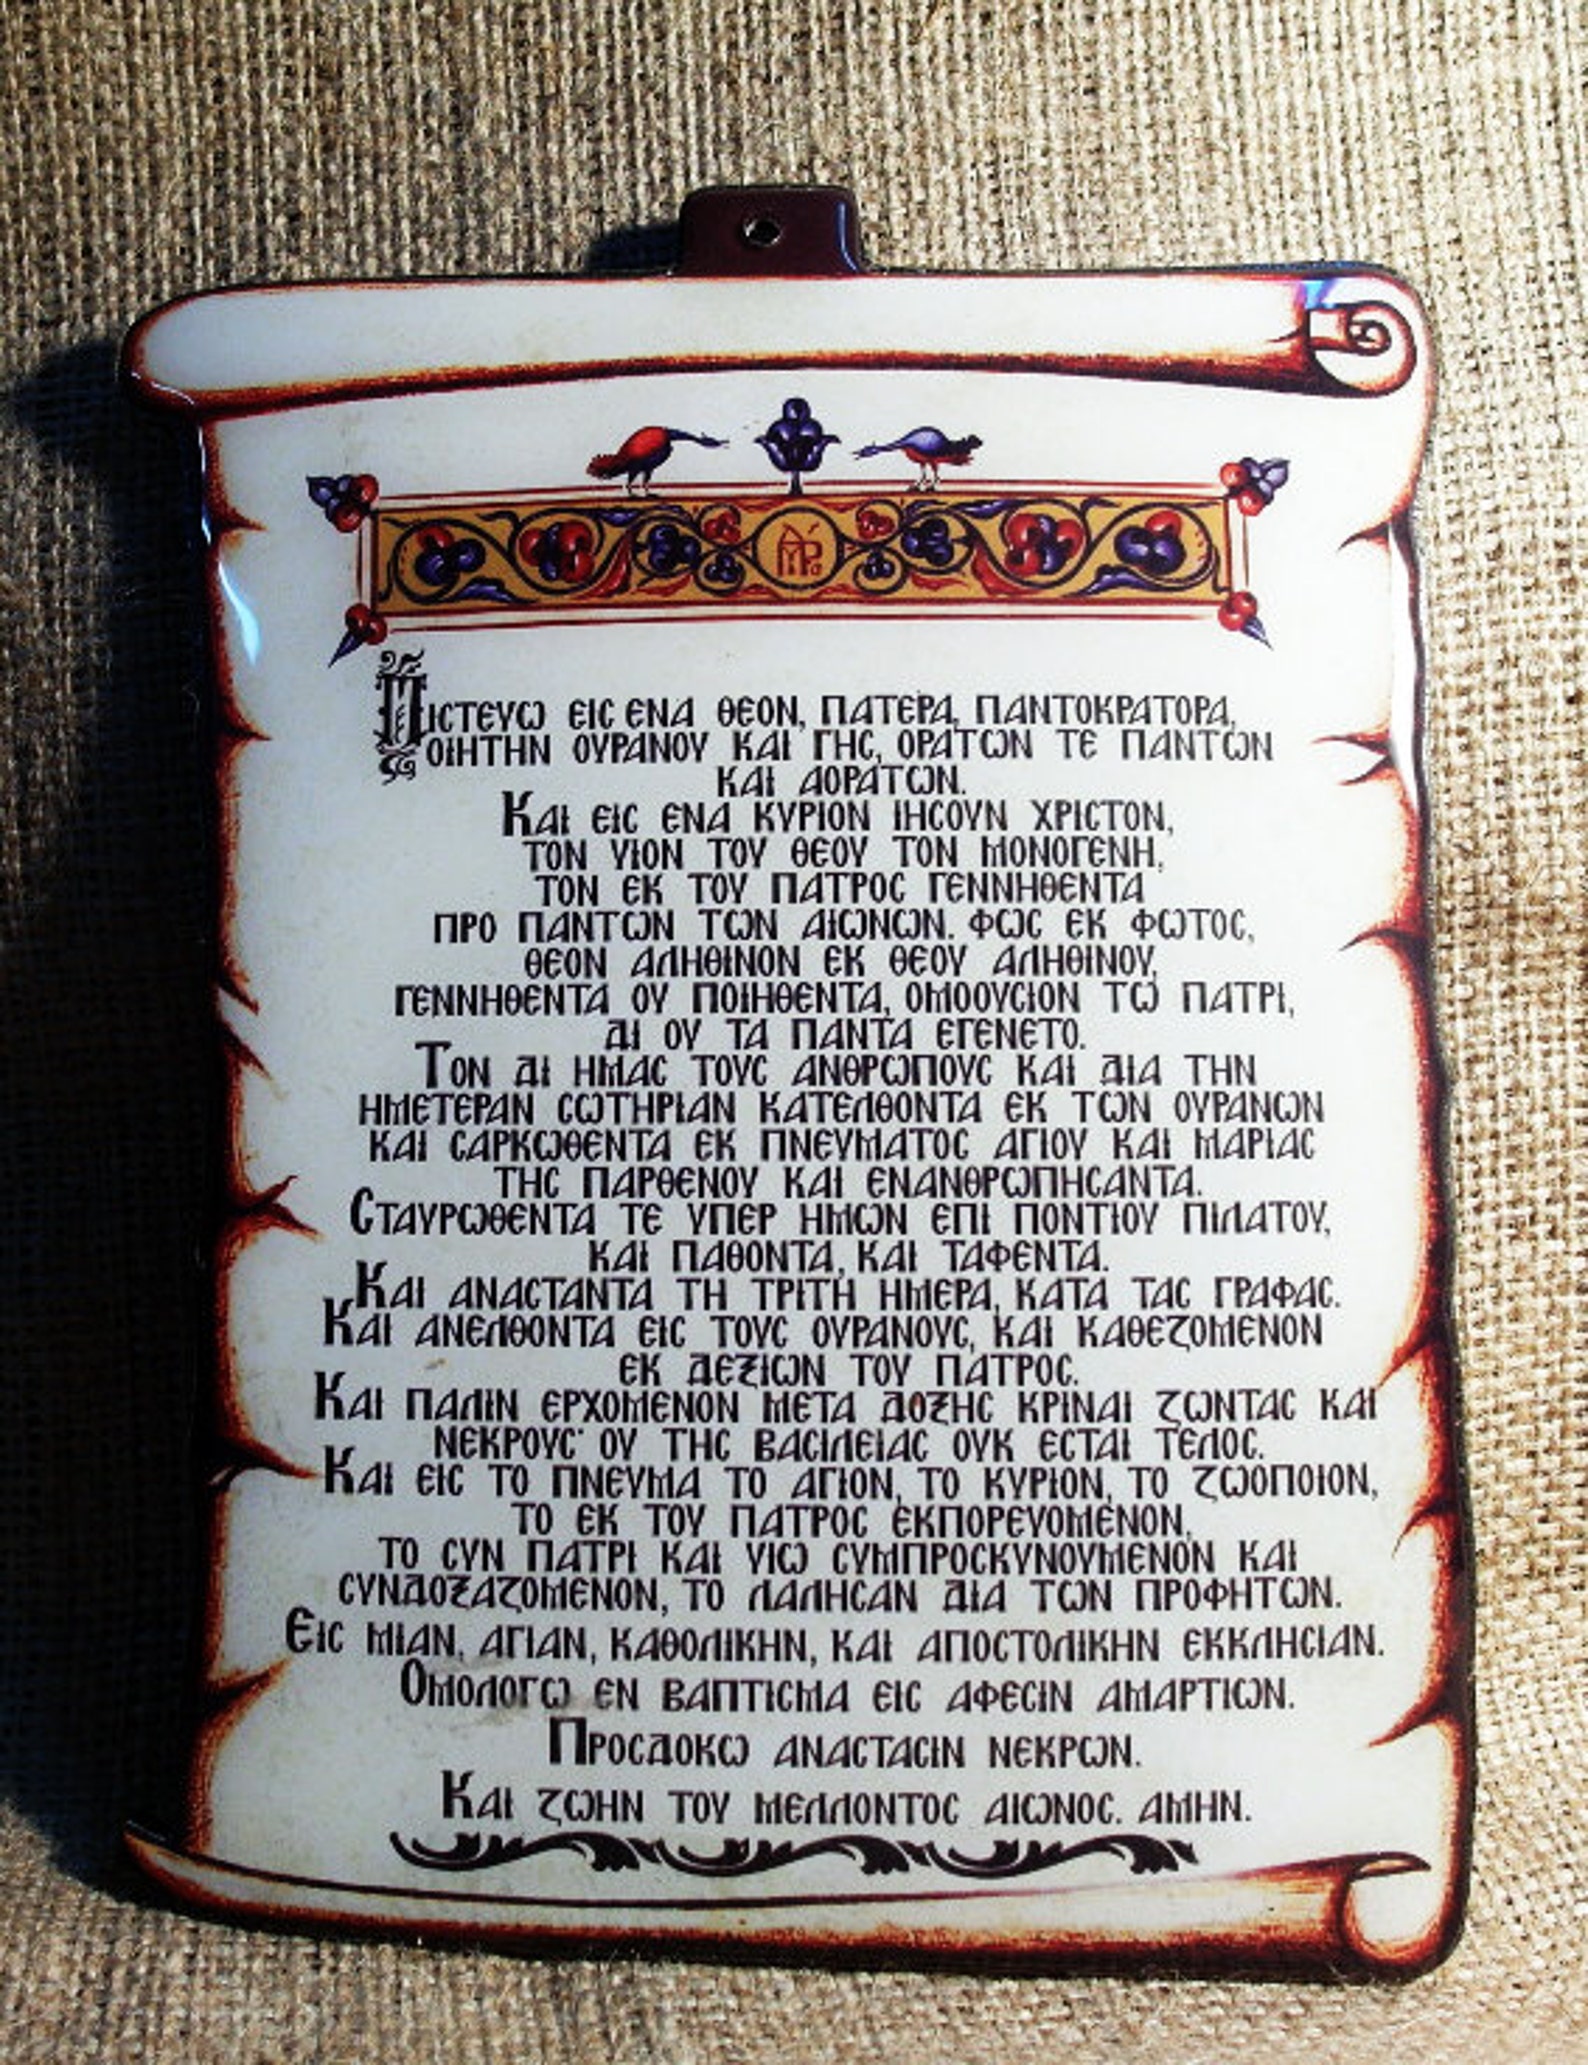 Πιστεύω εις ενα θεον, πατερα, παντοκρατορα,
ποιητην ουρανου και γης, ορατων τε παντων
και αορατων.
Και εις ενα κυριον ιησουν χριστον,
τον υιον του θεου τον μονογενη,
τον εκ του πατρος γεννηθεντα
προ παντων των αιωνων. φως εκ φωτος,
θεον αληθινον εκ θεου αληθινου,
γεννηθεντα ου ποιηθεντα, ομοουσιον τω πατρι,
δι ου τα παντα εγενετο.
Τον δι ημας τους ανθρωπους και δια την
ημετεραν σωτηριαν κατελθοντα εκ των ουρανων
και σαρκωθεντα εκ πνευματος αγιου και μαριας
της παρθενου και ενανθρωπησαντα.
Σταυρωθεντα τε υπερ ημων επι ποντιου πιλατου,
και παθοντα, και ταφεντα.
Και ανασταντα τη τριτη ημερα, κατα τας γραφας.
Και ανελθοντα εις τους ουρανους, και καθεζομενον
εκ δεξιων του πατρος.
Και παλιν ερχομενον μετα δοξης κριναι ζωντας και
νεκρους· ου της βασιλειας ουκ εσται τελος.
Και εις το πνευμα το αγιον, το κυριον, το ζωοποιον,
το εκ του πατρος εκπορευομενον,
το συν πατρι και υιω συμπροσκυνουμενον και
συνδοξαζομενον, το λαλησαν δια των προφητων.
Εις μιαν, αγιαν, καθολικην, και αποστολικην εκκλησιαν.
Ομολογω εν βαπτισμα εις αφεσιν αμαρτιων.
Προσδοκω αναστασιν νεκρων.
Και ζωην του μελλοντος αιωνος. αμην.